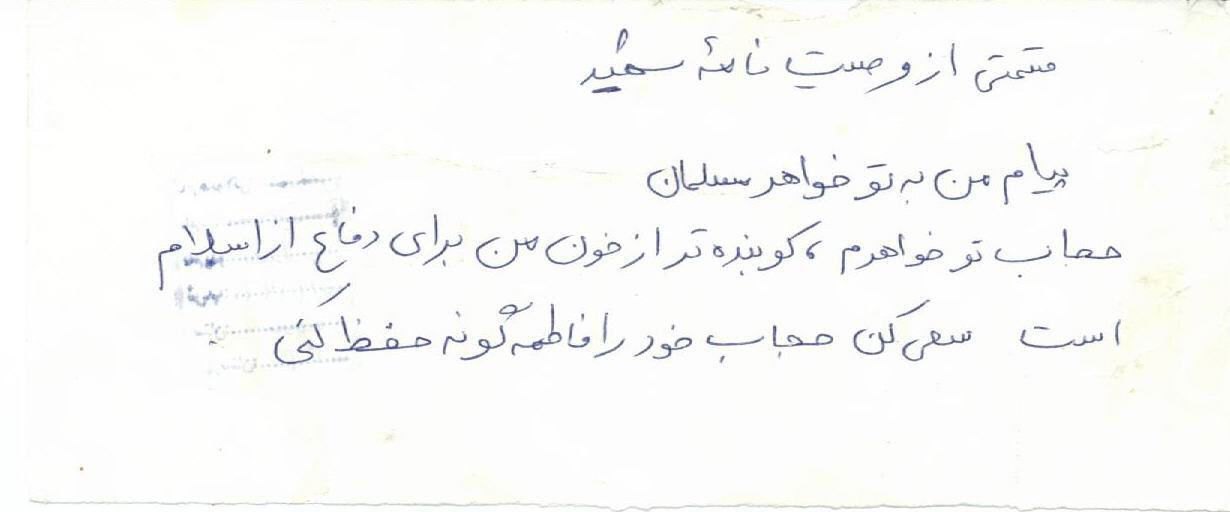 قسمتی از وصیت نامهٔ شهید
پیام من به تو خواهر مسلمان
حجاب تو خواهرم، کوبنده تر از خون من برای دفاع از اسلام
است سعی کن حجاب خود را فاطمه گونه حفظ کنی